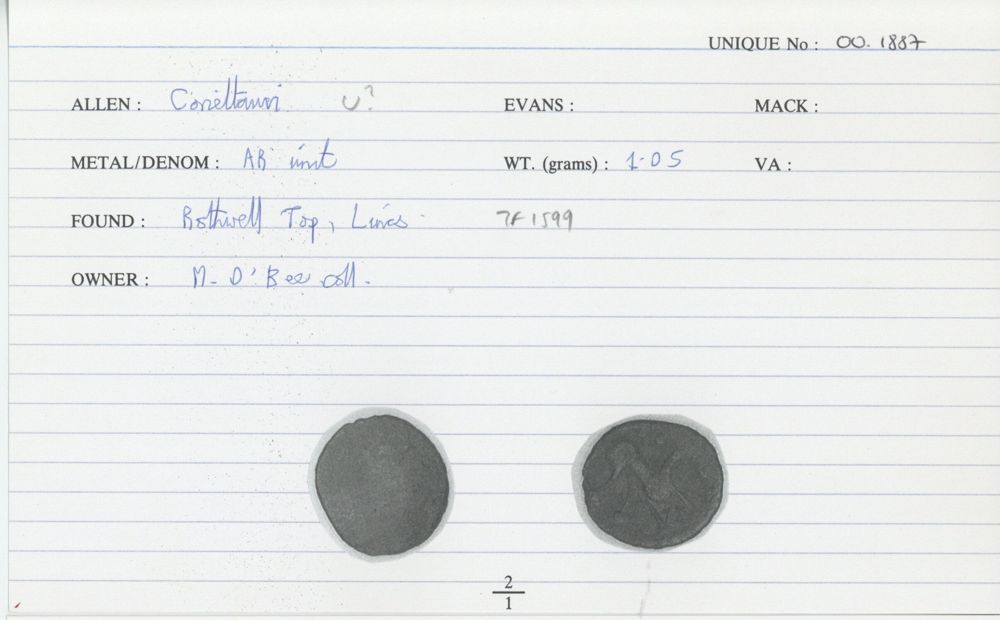 UNIQUE No : 00. 1887
ALLEN : Corieltauvi U? EVANS : MACK :
METAL/DENOM : AR unit WT. (grams) : 1.05 VA :
FOUND : Rothwell Top, Lincs. TF 1599
OWNER : M. O'Bee coll.
2
1